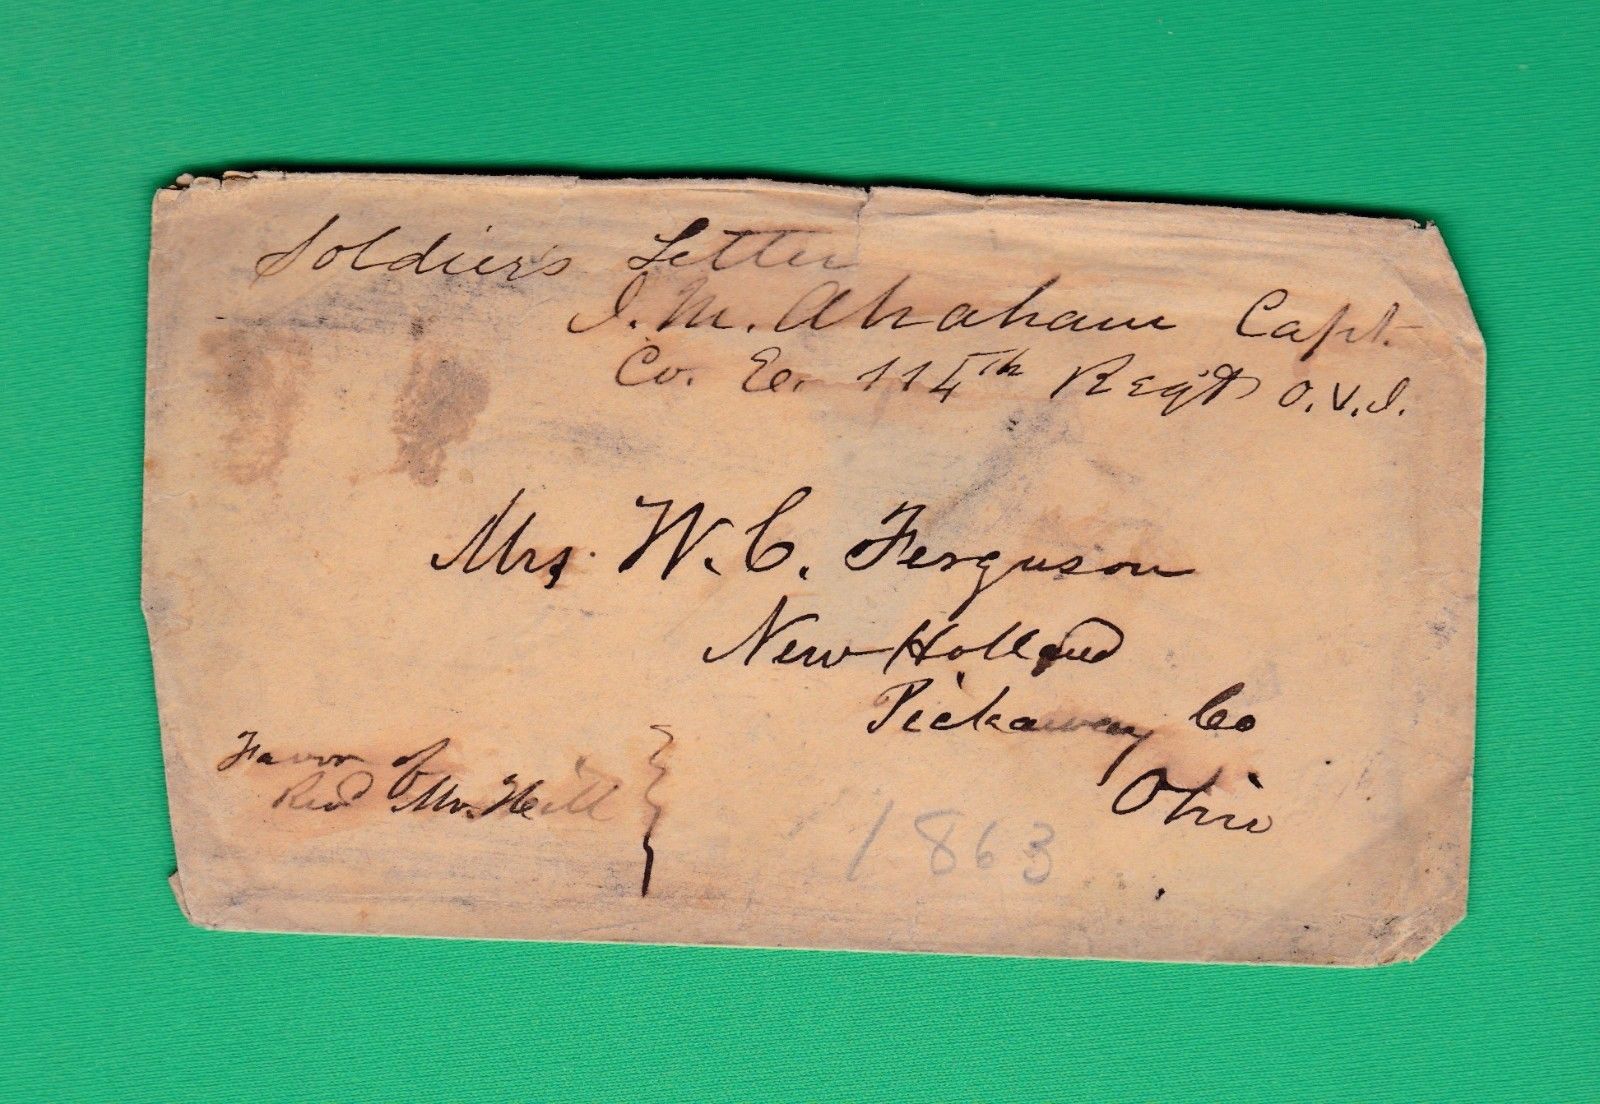 Soldier's Letter
J. M. Abraham Capt.
Co. E. 114th Regt O.V.I.
Mrs. W. C. Ferguson
New Holland
Pickaway Co
Ohio
Favor of
Revd Mr. Heill
1863